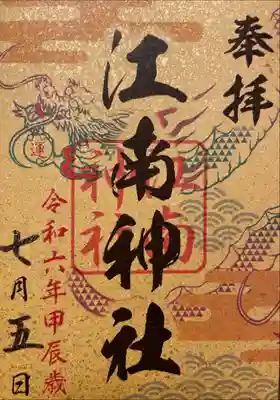 奉拝
江南神社
江南
神社
運
令和六年甲辰歳
七月五日